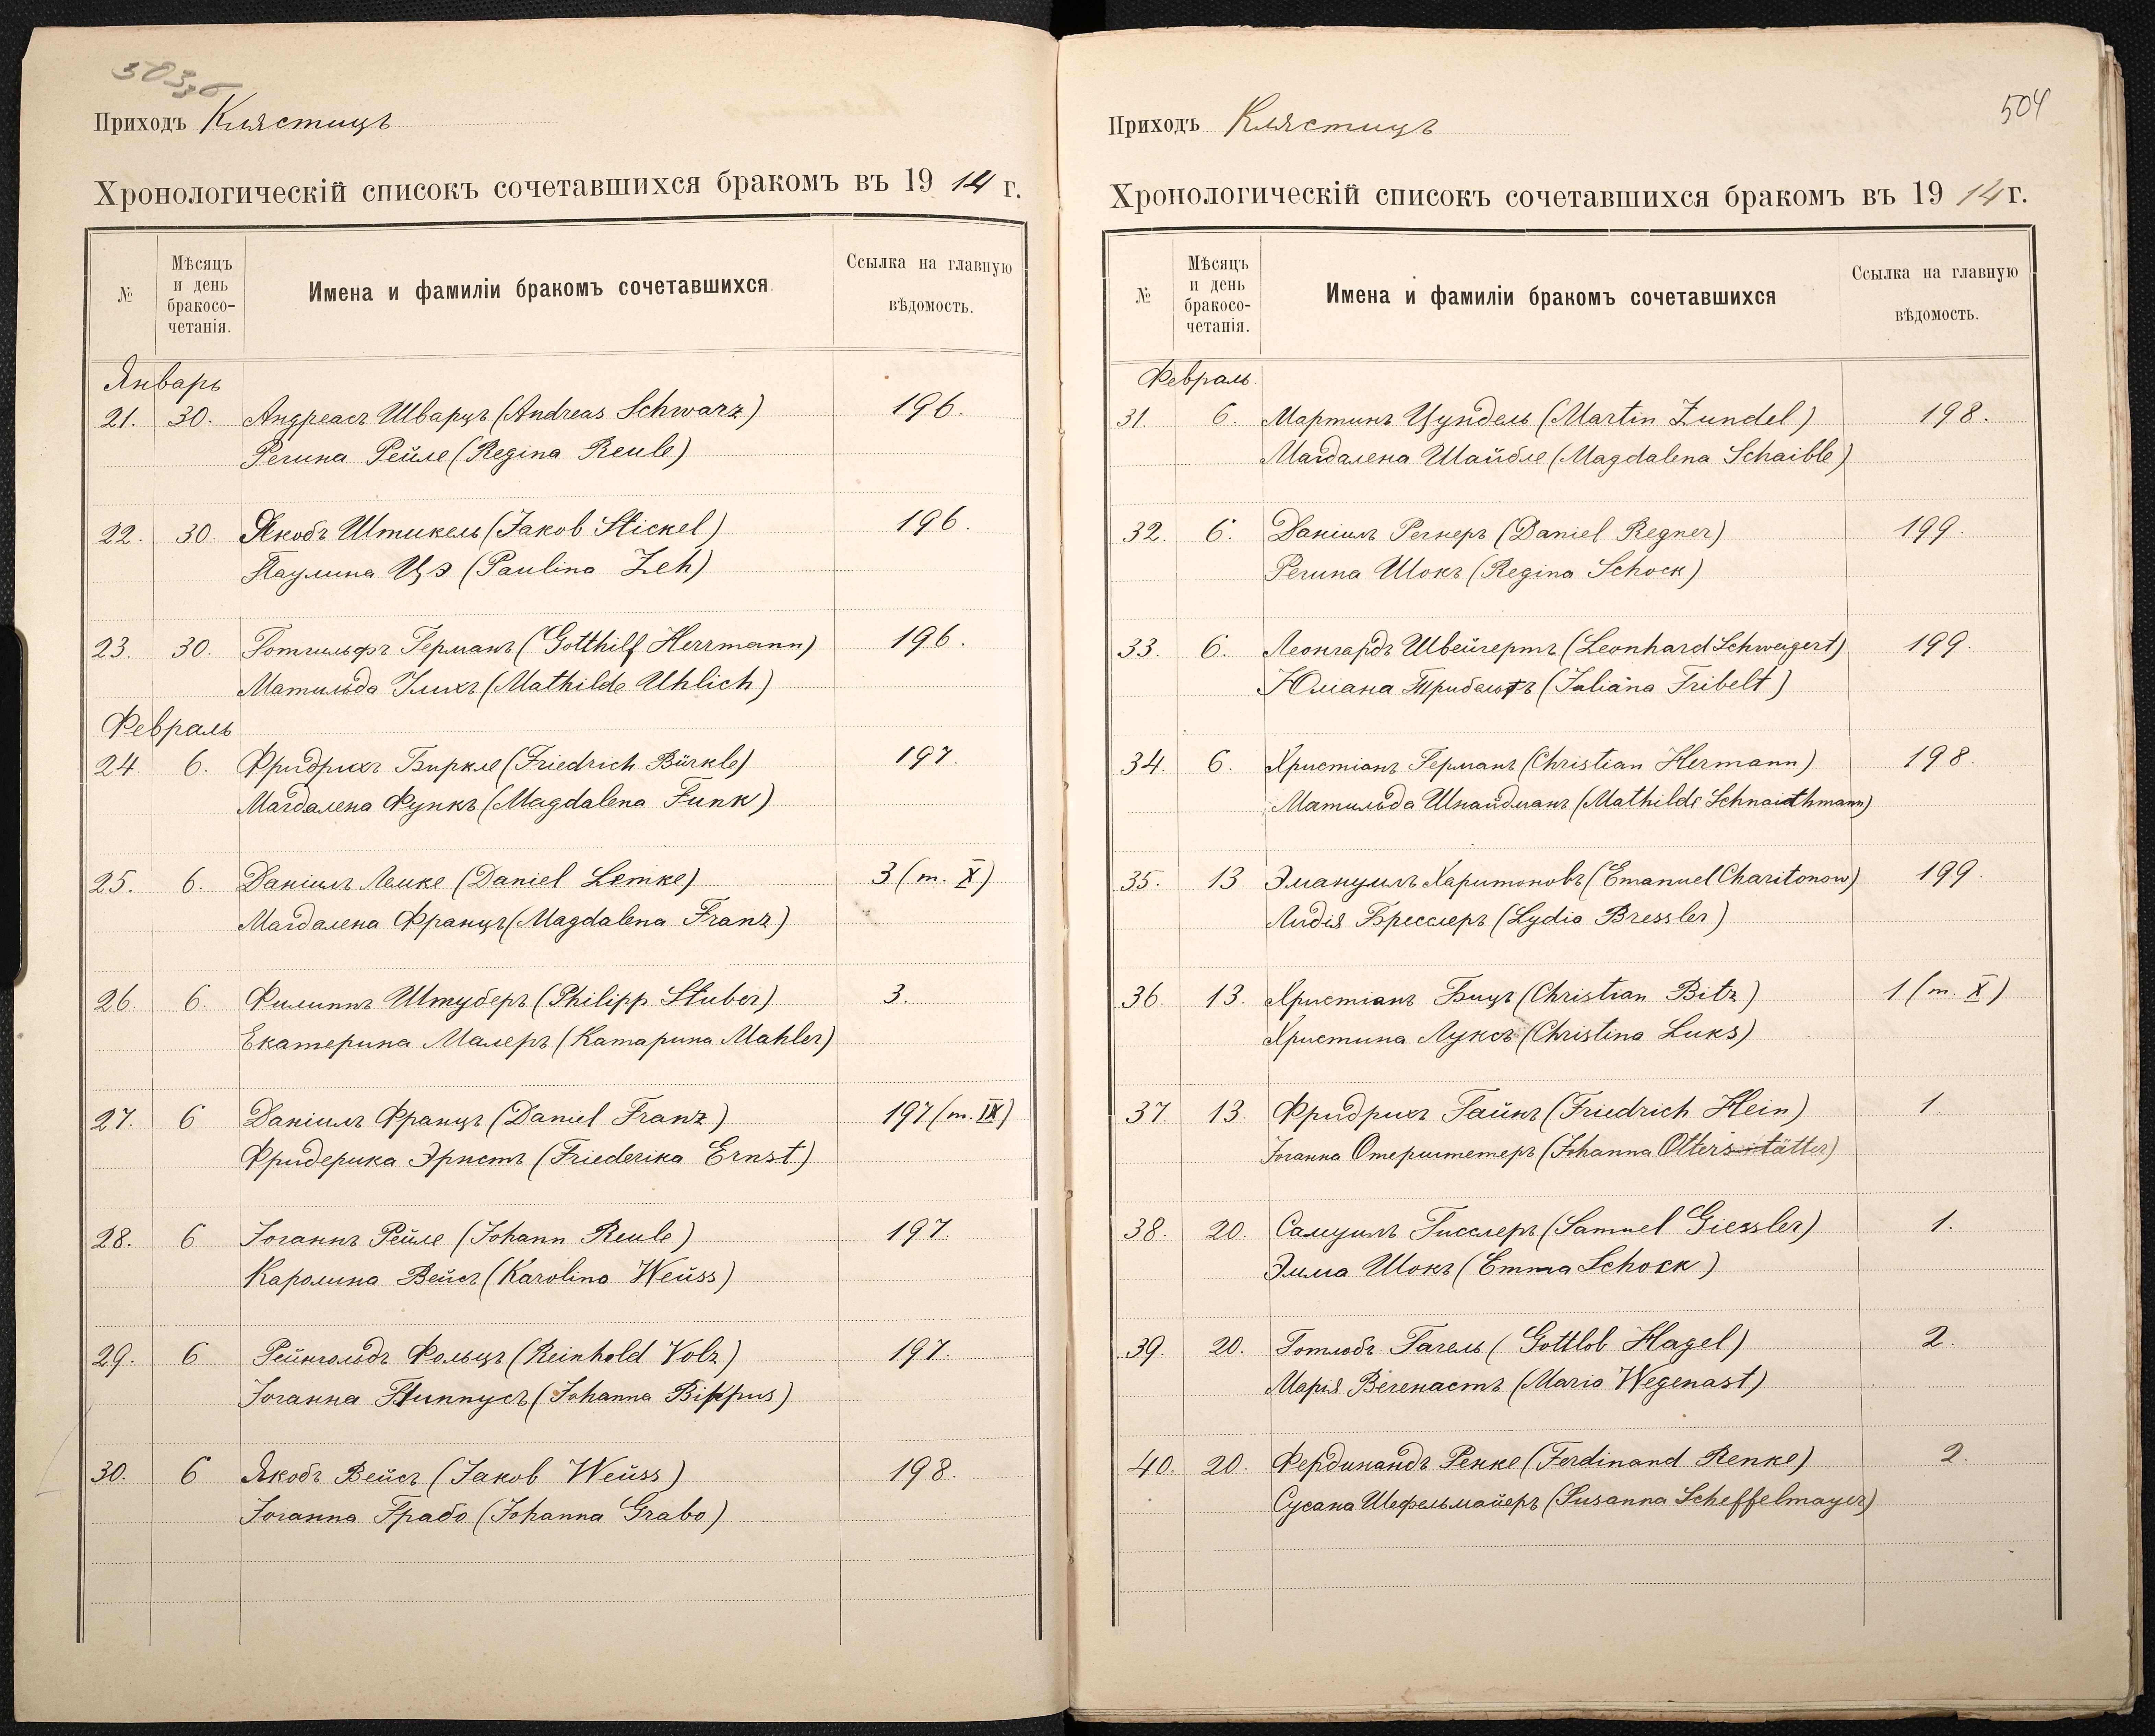 503 об
Приходъ Клястицъ
Хронологическій списокъ сочетавшихся бракомъ въ 1914 г.
№ Мѣсяцъ и день бракосо-четанія. Имена и фамиліи бракомъ сочетавшихся. Ссылка на главную вѣдомость.
Январь
21. 30. Андреасъ Шварцъ (Andreas Schwarz) 196.
Регина Рейле (Regina Reule)
22. 30. Якобъ Штикель (Jakob Stickel) 196.
Паулина Цэ (Paulina Zeh)
23. 30. Готгильфъ Германъ (Gotthilf Herrmann) 196.
Матильда Улихъ (Mathilde Uhlich)
Февраль
24. 6. Фридрихъ Биркле (Friedrich Bürkle) 197.
Магдалена Функъ (Magdalena Funk)
25. 6. Даніилъ Лемке (Daniel Lemke) 3 (т. X)
Магдалена Францъ (Magdalena Franz)
26. 6. Филиппъ Штуберъ (Philipp Stuber) 3.
Екатерина Малеръ (Катарина Mahler)
27. 6 Даніилъ Францъ (Daniel Franz) 197 (т. IX)
Фридерика Эрнстъ (Friederika Ernst)
28. 6 Іоганнъ Рейле (Johann Reule) 197.
Каролина Вейсъ (Karolina Weiss)
29. 6 Рейнгольдъ Фольцъ (Reinhold Volz) 197.
Іоганна Биппусъ (Johanna Bippus)
30. 6 Якобъ Вейсъ (Jakob Weiss) 198.
Іоганна Грабо (Johanna Grabo)
504
Приходъ Клястицъ
Хронологическій списокъ сочетавшихся бракомъ въ 1914 г.
№ Мѣсяцъ и день бракосо-четанія. Имена и фамиліи бракомъ сочетавшихся Ссылка на главную вѣдомость.
Февраль
31. 6. Мартинъ Цундель (Martin Zundel) 198.
Магдалена Шайбле (Magdalena Schaible)
32. 6. Даніилъ Регнеръ (Daniel Regner) 199.
Регина Шокъ (Regina Schock)
33. 6. Леонгардъ Швейгертъ (Leonhard Schweigert) 199.
Юліана Трибельтъ (Juliana Tribelt)
34. 6. Христіанъ Германъ (Christian Hermann) 198.
Матильда Шнайдманъ (Mathilde Schnaithmann)
35. 13 Эмануилъ Харитоновъ (Emanuel Charitonow) 199.
Лидія Бресслеръ (Lydia Bressler)
36. 13. Христіанъ Бицъ (Christian Bitz) 1 (т. X)
Христина Луксъ (Christina Luks)
37. 13. Фридрихъ Гайнъ (Friedrich Hein) 1.
Іоганна Отерштетеръ (Johanna Otterstätter)
38. 20. Самуилъ Гисслеръ (Samuel Giessler) 1.
Эмма Шокъ (Emma Schock)
39. 20. Готлобъ Гагель (Gottlob Hagel) 2.
Марія Вегенастъ (Maria Wegenast)
40. 20. Фердинандъ Ренке (Ferdinand Renke) 2.
Сусана Шефельмайеръ (Susanna Scheffelmayer)